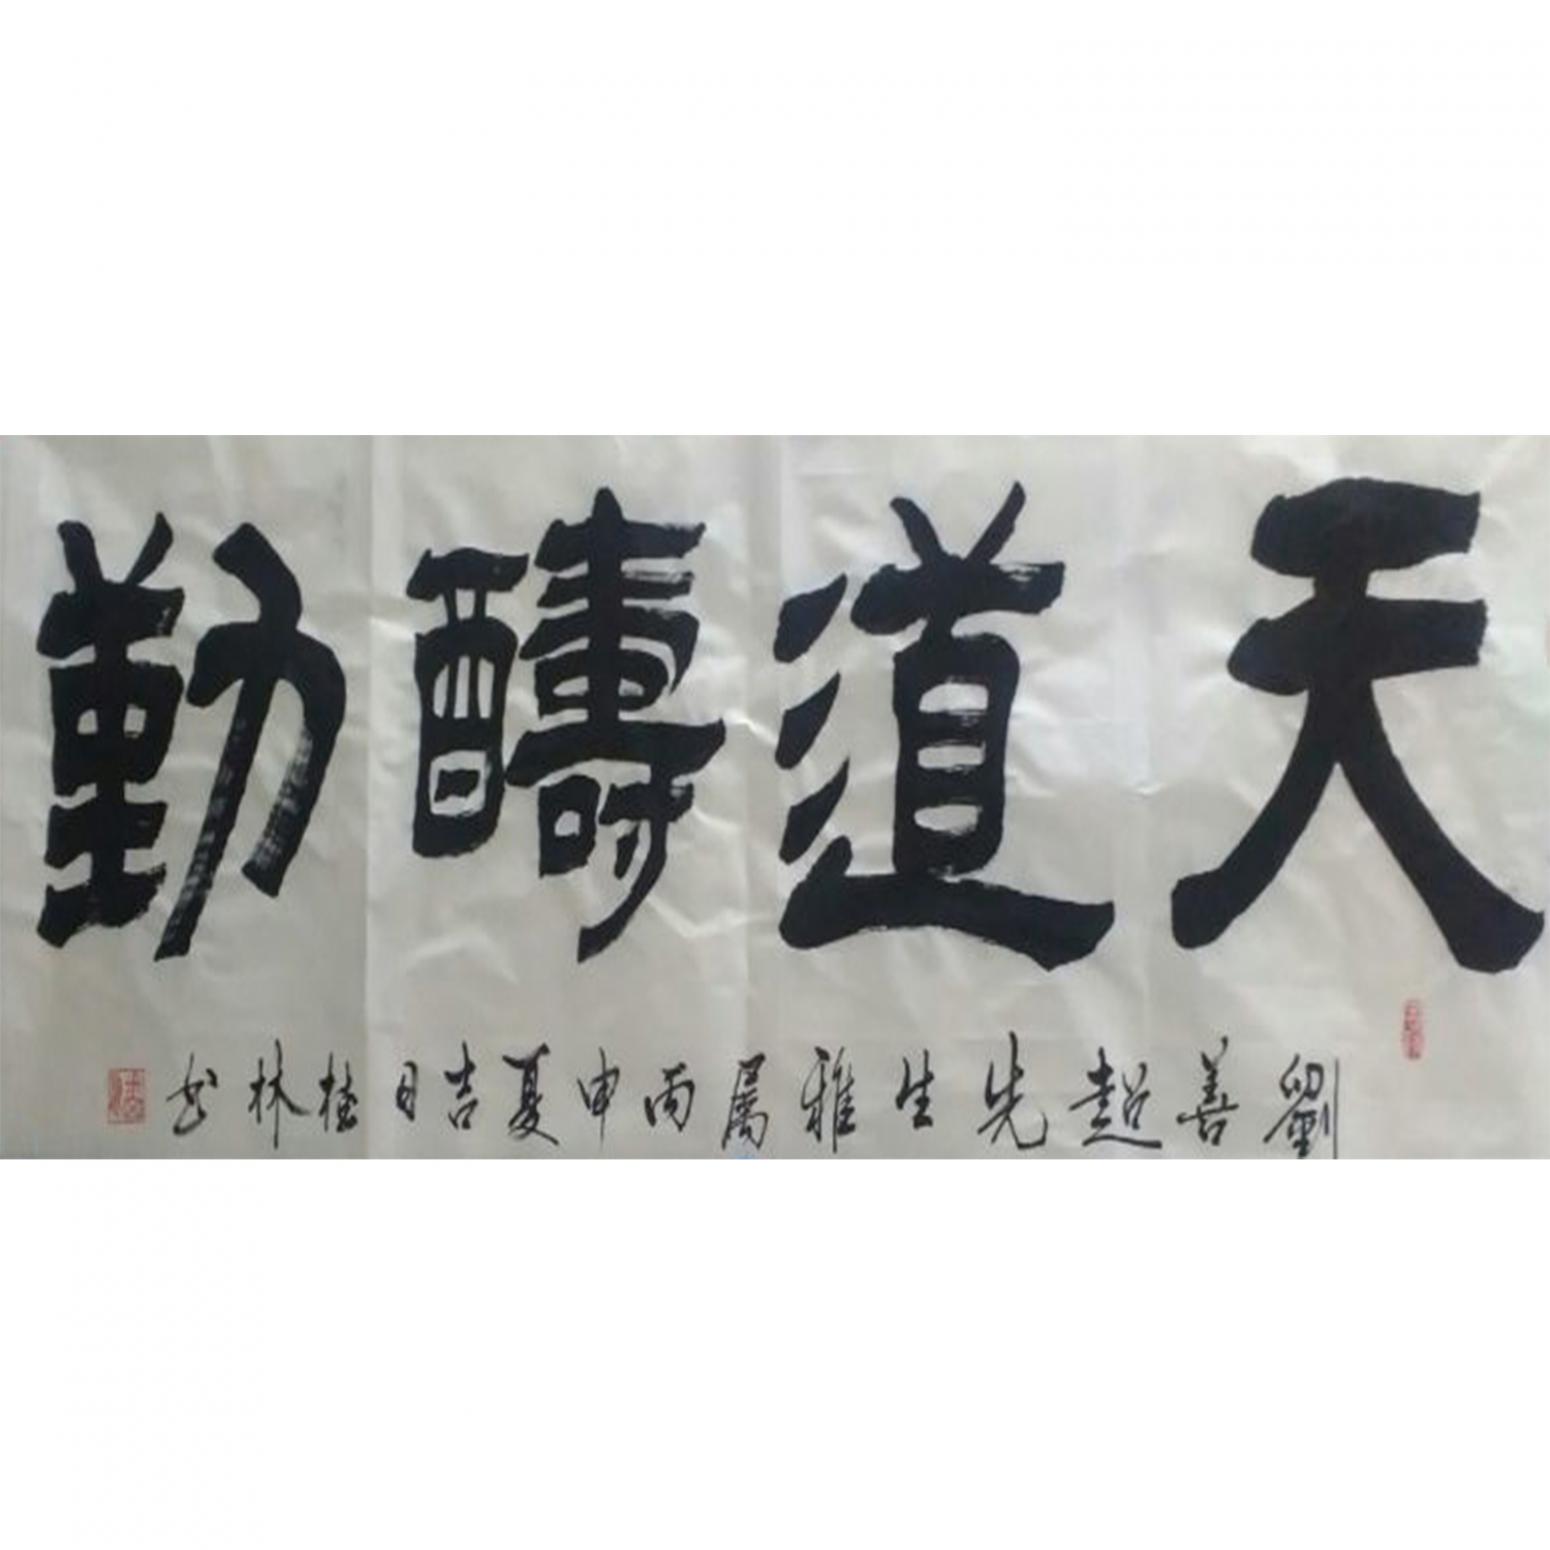 天道醻勤
劉善超先生雅屬丙申夏吉日桂林书